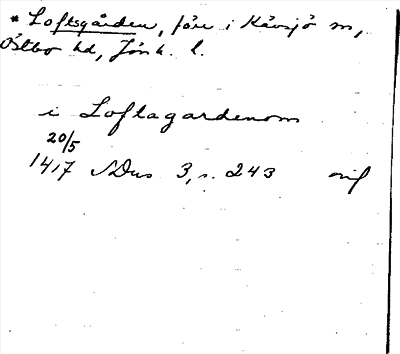 * Loftsgården, förr i Kävsjö sn,
Östbo hd, Jönk. l.
i Loftagardenom
20/5
1417 SDns 3, s. 243 orig